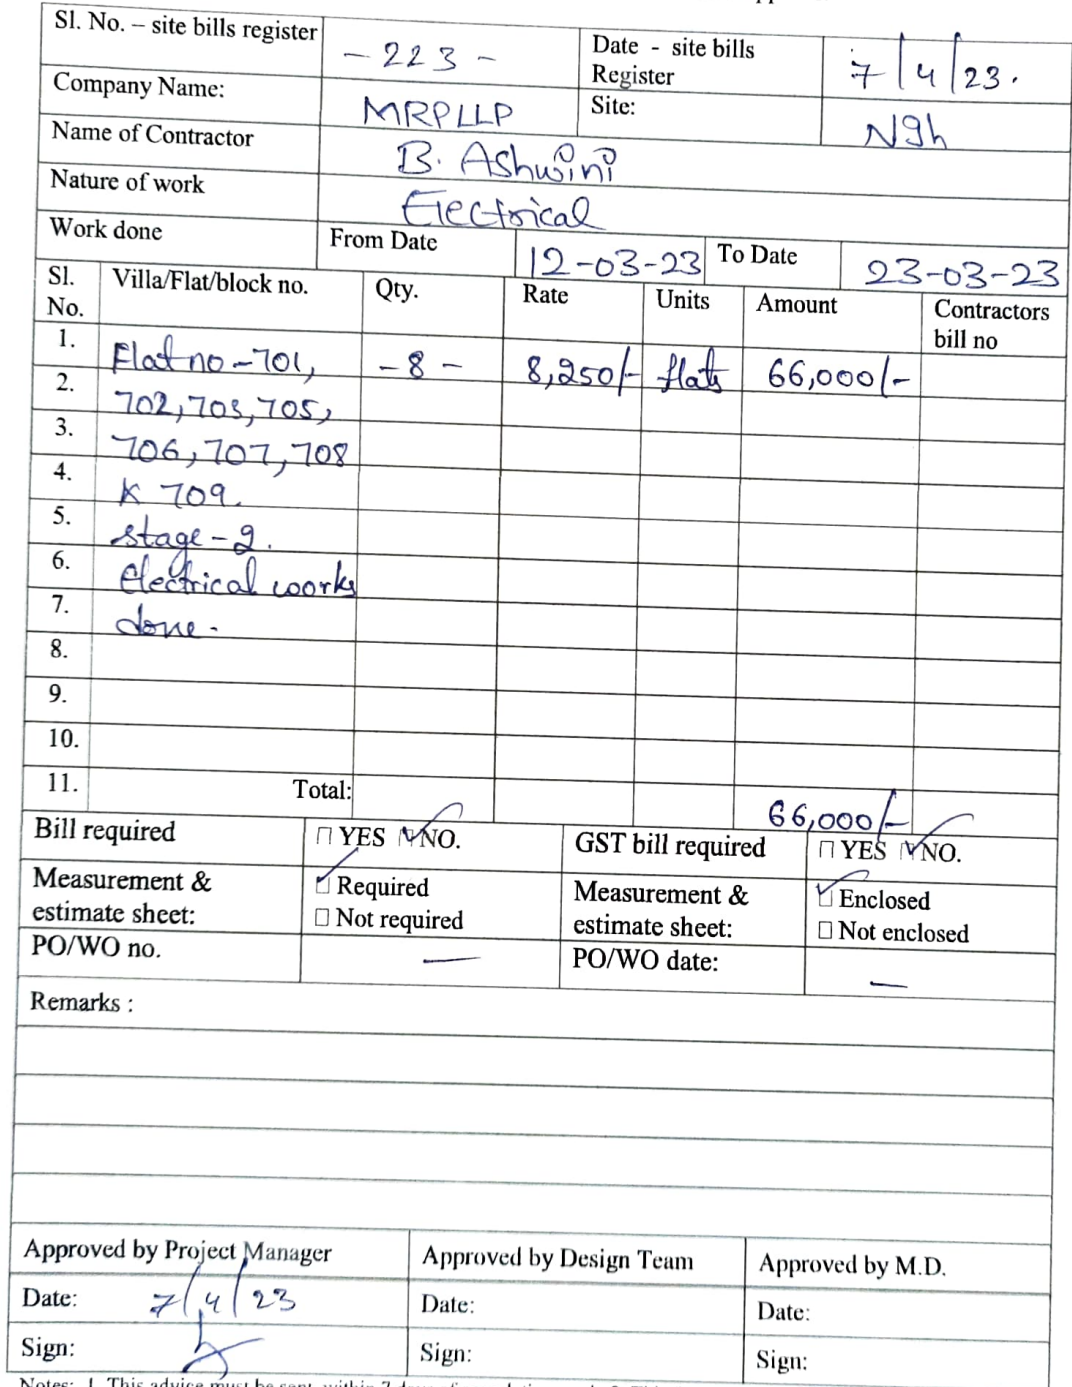 Sl. No. – site bills register - 223 - Date - site bills Register 7/4/23.
Company Name: MRPLLP Site: Ngh
Name of Contractor B. Ashwini
Nature of work Electrical
Work done From Date 12-03-23 To Date 23-03-23
Sl. No. Villa/Flat/block no. Qty. Rate Units Amount Contractors bill no
1. Flat no - 701, - 8 - 8,250/- flats 66,000/-
2. 702, 703, 705,
3. 706, 707, 708
4. & 709.
5. stage - 2.
6. Electrical works
7. done.
8.
9.
10.
11. Total: 66,000/-
Bill required YES NO. GST bill required YES NO.
Measurement & estimate sheet: Required Not required Measurement & estimate sheet: Enclosed Not enclosed
PO/WO no. — PO/WO date: —
Remarks :
Approved by Project Manager Approved by Design Team Approved by M.D.
Date: 7/4/23 Date: Date:
Sign: Sign: Sign:
Notes: 1. This advice must be sent within 7 days of